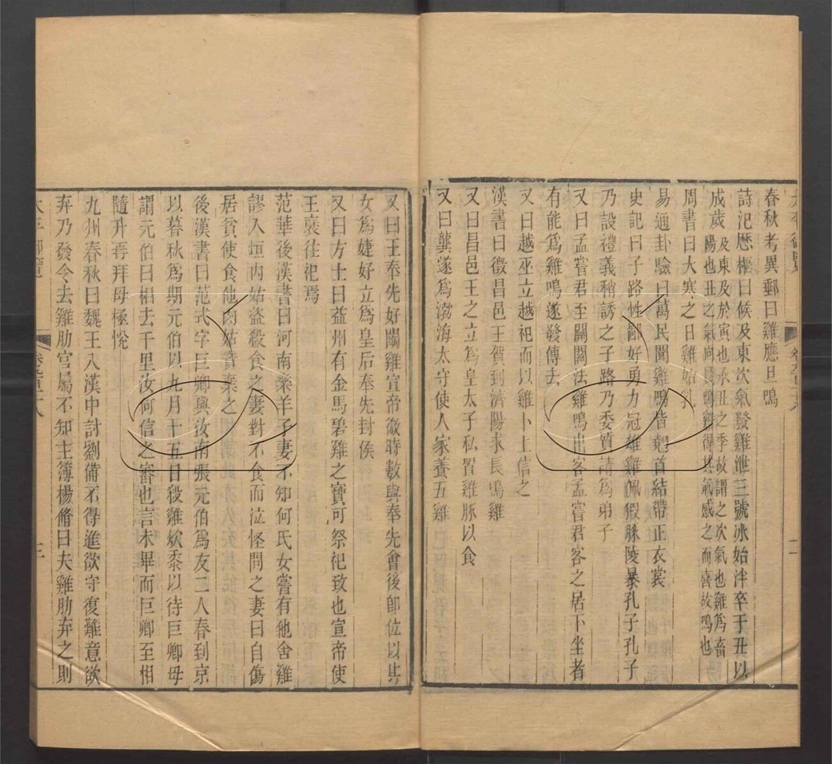 春秋考異郵曰雞應旦鳴
詩汜歷樞曰候及東次氣發雞泄三號冰始泮卒于丑以
成歲 及東及於寅也承丑之季故謂之次氣也雞爲畜陽也丑之氣向晨鳴雞得其氣感之而喜故鳴也
周書曰大寒之日雞始乳
易通卦驗曰萬民聞雞鳴皆翹首結帶正衣裳
史記曰子路性鄙好勇力冠雄雞佩猳豚陵暴孔子孔子
乃設禮義稍誘之子路乃委質請爲弟子
又曰孟嘗君至關關法雞鳴出客孟嘗君客之居下坐者
有能爲雞鳴遂發傳去
又曰越巫立越祀而以雞卜上信之
漢書曰徵昌邑王賀到濟陽求長鳴雞
又曰昌邑王之立爲皇太子私買雞豚以食
又曰龔遂爲渤海太守使人家養五雞
又曰王奉先好鬬雞宣帝微時數與奉先會後卽位以其
女爲婕妤立爲皇后奉先封侯
又曰方士曰益州有金馬碧雞之寶可祭祀致也宣帝使
王襃往祀焉
范華後漢書曰河南樂羊子妻不知何氏女嘗有他舍雞
謬入垣內姑盜殺食之妻對不食而泣怪問之妻曰自傷
居貧使食他肉姑皆棄之
後漢書曰范式字巨卿與汝南張元伯爲友二人春到京
以暮秋爲期元伯以九月十五日殺雞炊黍以待巨卿母
謂元伯曰相去千里汝何信之審也言未畢而巨卿至相
隨升再拜母極悅
九州春秋曰魏王入漢中討劉備不得進欲守復難意欲
弃乃發令去雞肋官屬不知主簿楊脩曰夫雞肋弃之則
太平御覽
三